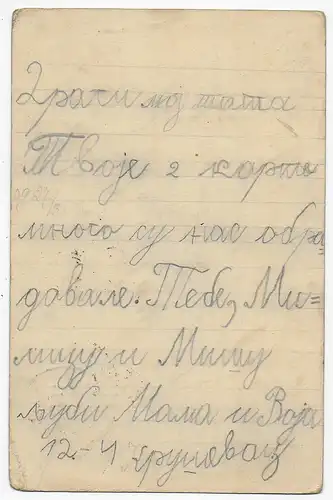 Драги мој тата
Твоје 2 карте
много су нас обра
довале. Тебе, Ми=
мицу и Мишу
љуби Мама и Воја
12.-4 Крушевац